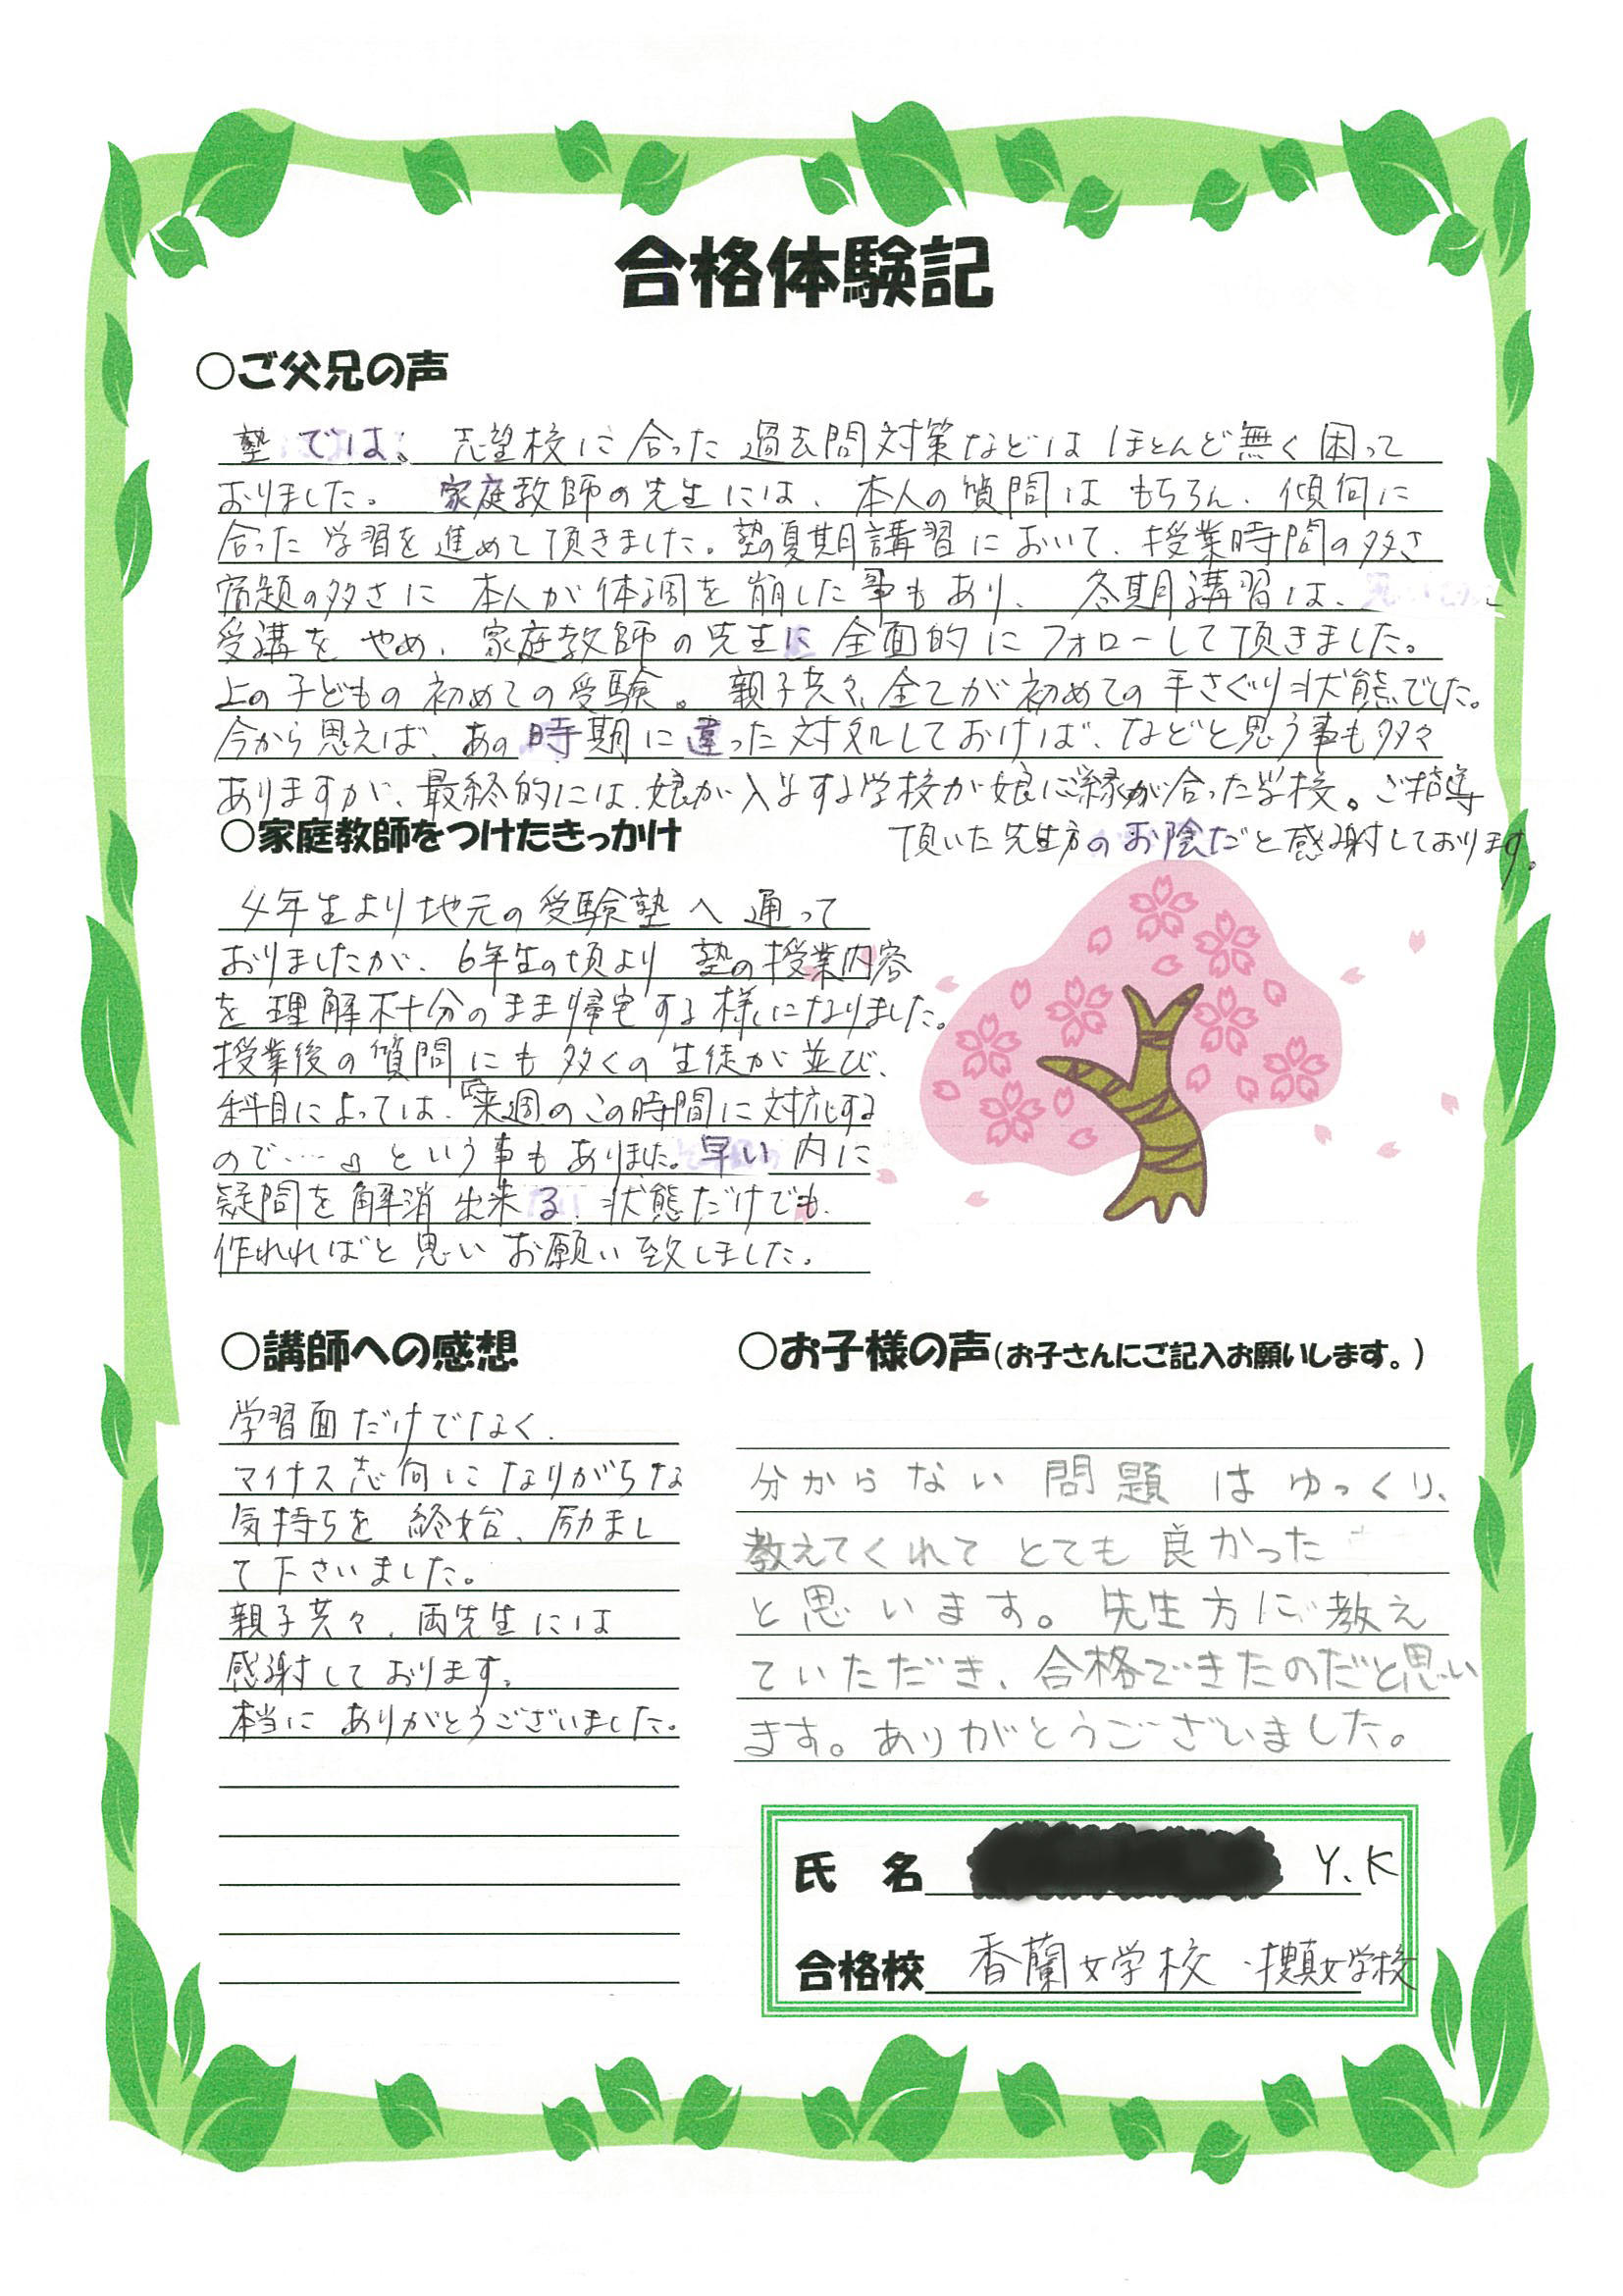 合格体験記
○ご父兄の声
塾では、志望校に合った過去問対策などはほとんど無く困って
おりました。家庭教師の先生には、本人の質問はもちろん、傾向に
合った学習を進めて頂きました。塾の夏期講習において、授業時間の多さ
宿題の多さに本人が体調を崩した事もあり、冬期講習は、
受講をやめ、家庭教師の先生に全面的にフォローして頂きました。
上の子どもの初めての受験。親子共々、全てが初めての手さぐり状態でした。
今から思えば、あの時期に違った対処しておけば、などと思う事も多々
ありますが、最終的には、娘が入学する学校が娘にご縁が合った学校。ご指導
頂いた先生方のお陰だと感謝しております。
○家庭教師をつけたきっかけ
4年生より地元の受験塾へ通って
おりましたが、6年生の頃より塾の授業内容
を理解不十分のまま帰宅する様になりました。
授業後の質問にも多くの生徒が並び、
科目によっては、『来週のこの時間に対応する
ので……』という事もありました。早い内に
疑問を解消出来る状態だけでも
作れればと思いお願い致しました。
○講師への感想
学習面だけでなく、
マイナス志向になりがちな
気持ちを終始、励まし
て下さいました。
親子共々、両先生には
感謝しております。
本当にありがとうございました。
○お子様の声(お子さんにご記入お願いします。)
分からない問題はゆっくり、
教えてくれてとても良かった
と思います。先生方に教え
ていただき、合格できたのだと思い
ます。ありがとうございました。
氏 名 Y.K
合格校 香蘭女学校・捜真女学校